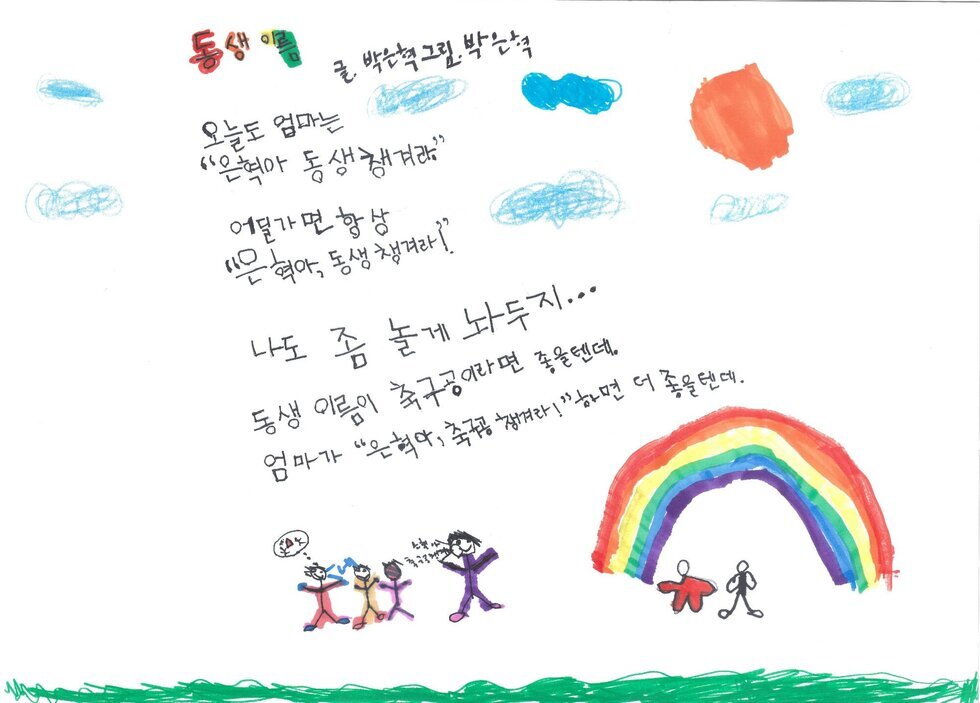 동생 이름
글. 박은혁 그림. 박은혁
오늘도 엄마는
“은혁아 동생 챙겨라”
어딜가면 항상
“은혁아, 동생 챙겨라!”
나도 좀 놀게 놔두지...
동생 이름이 축구공이라면 좋을텐데.
엄마가 “은혁아, 축구공 챙겨라!” 하면 더 좋을텐데.